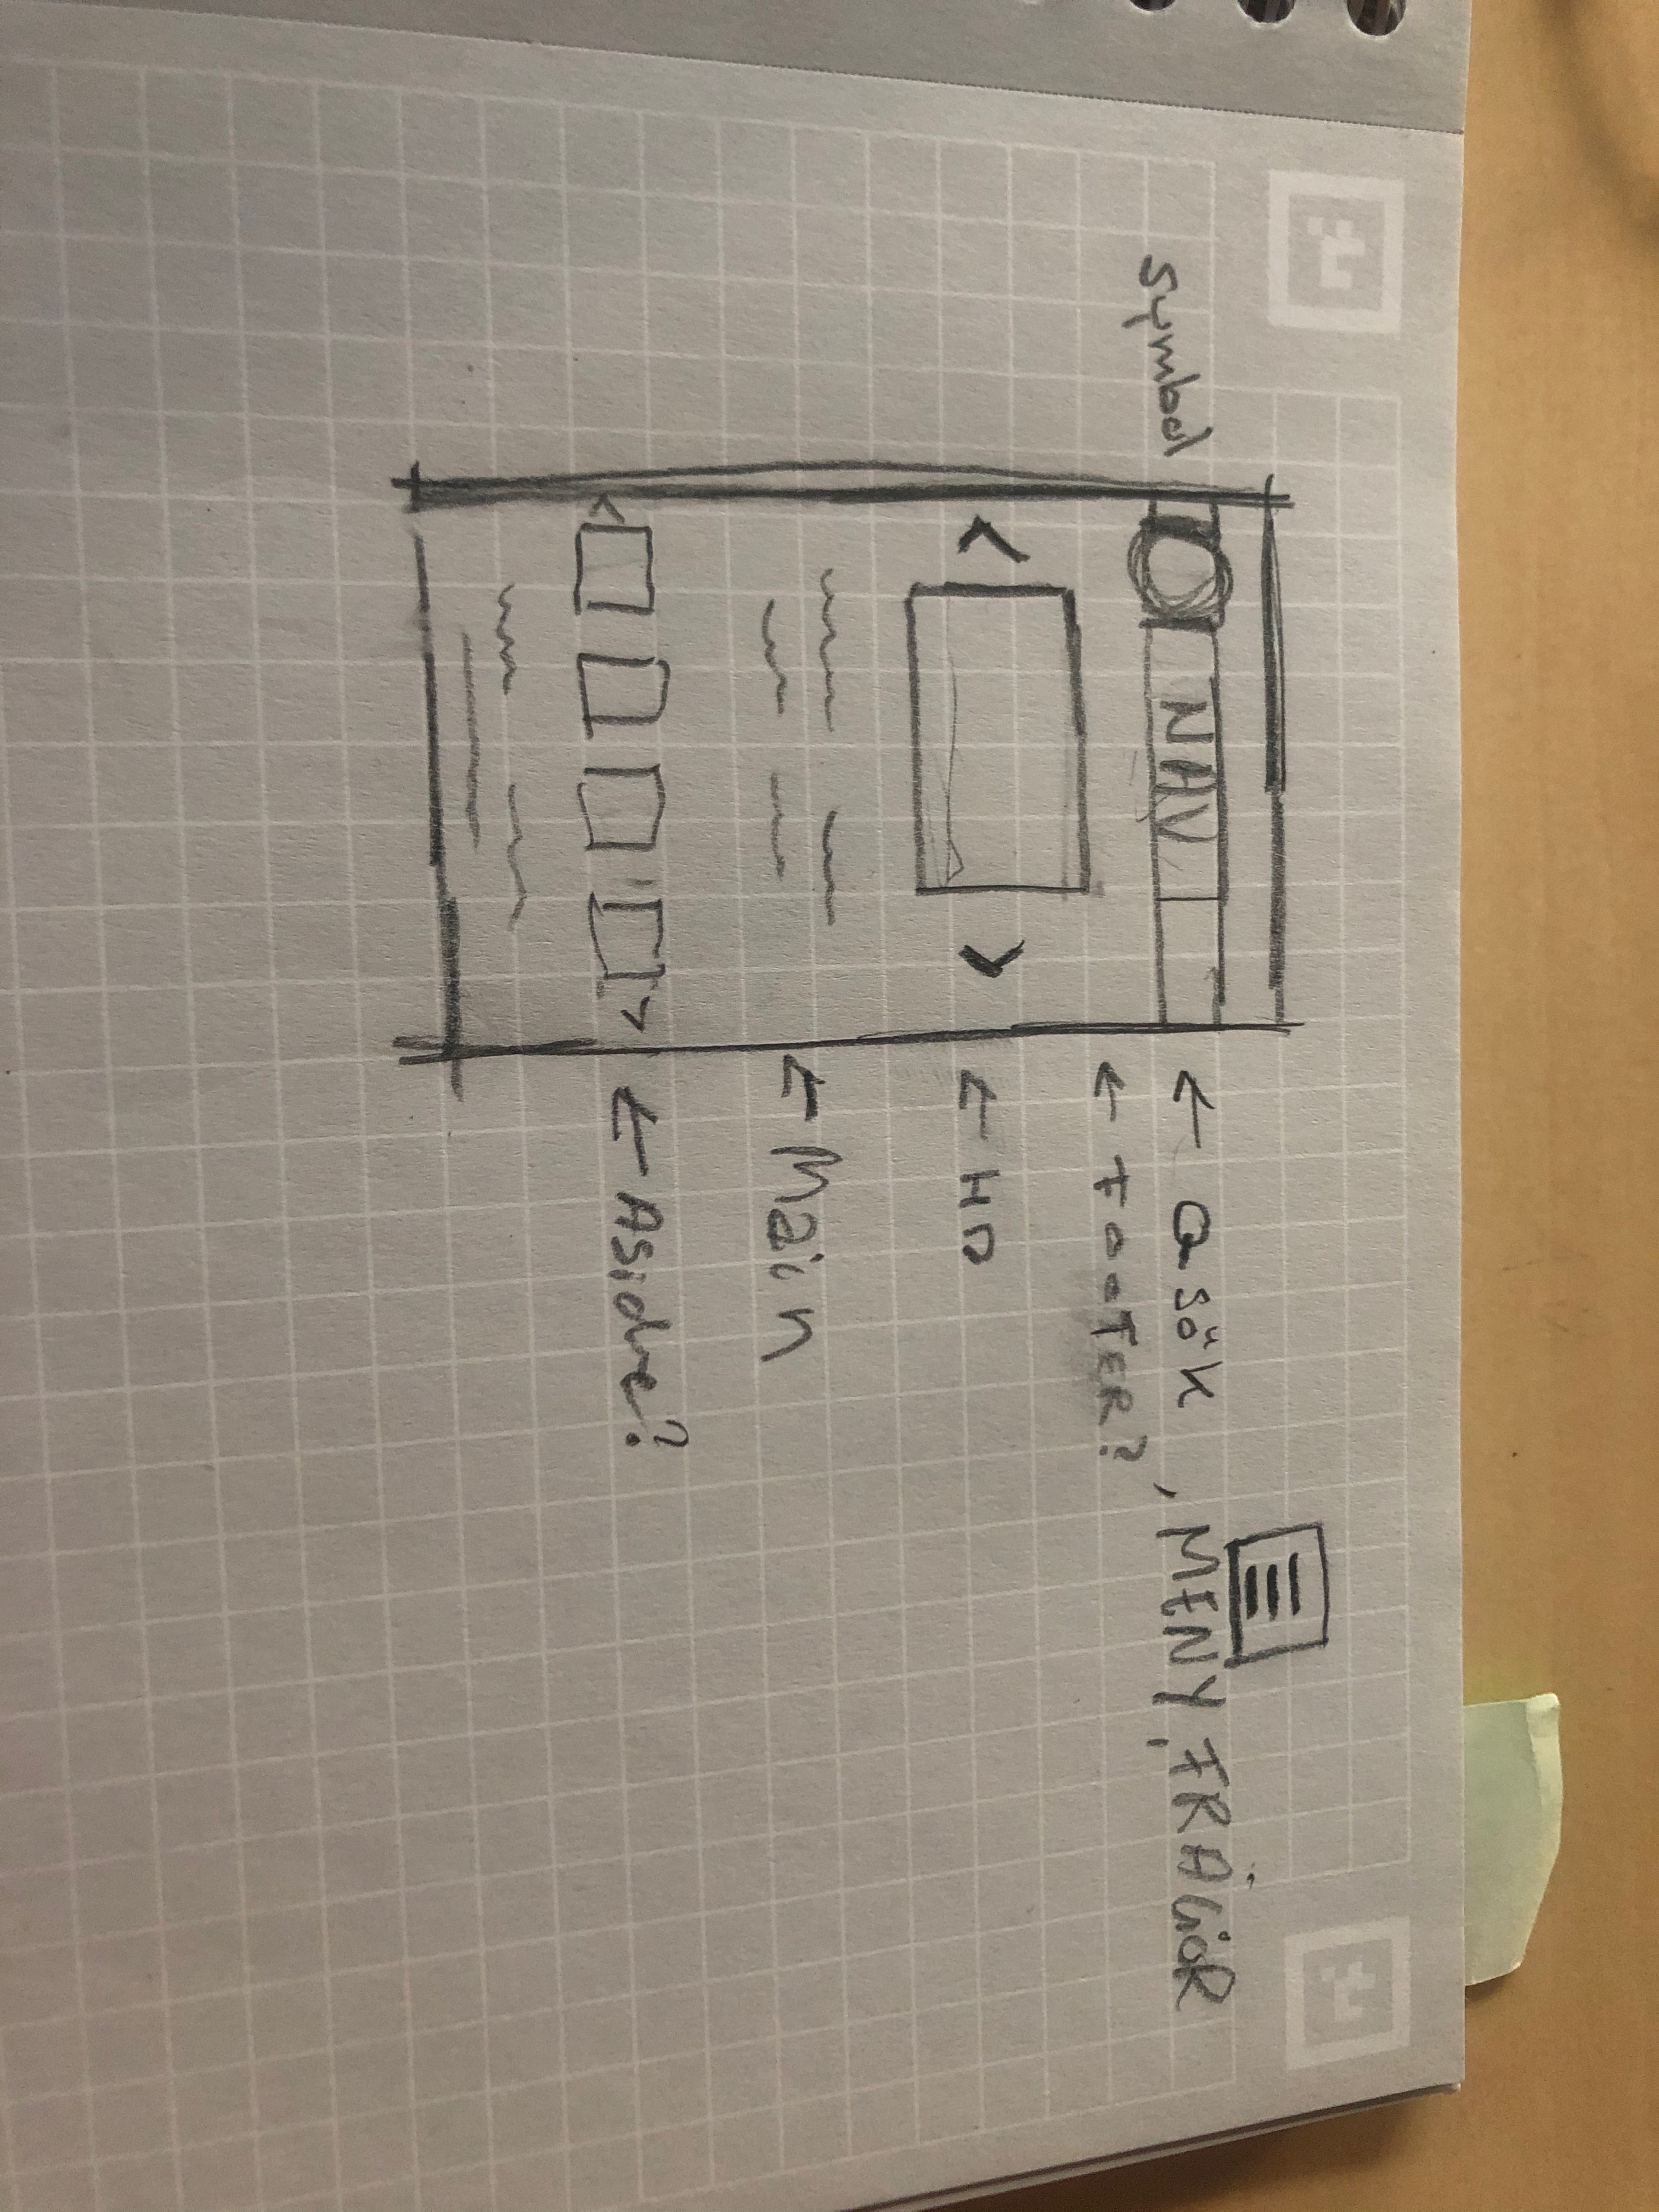 Symbol
NAV
← Q SÖK, MENY, FRÅGOR
← FOOTER?
← HD
← Main
← Aside?